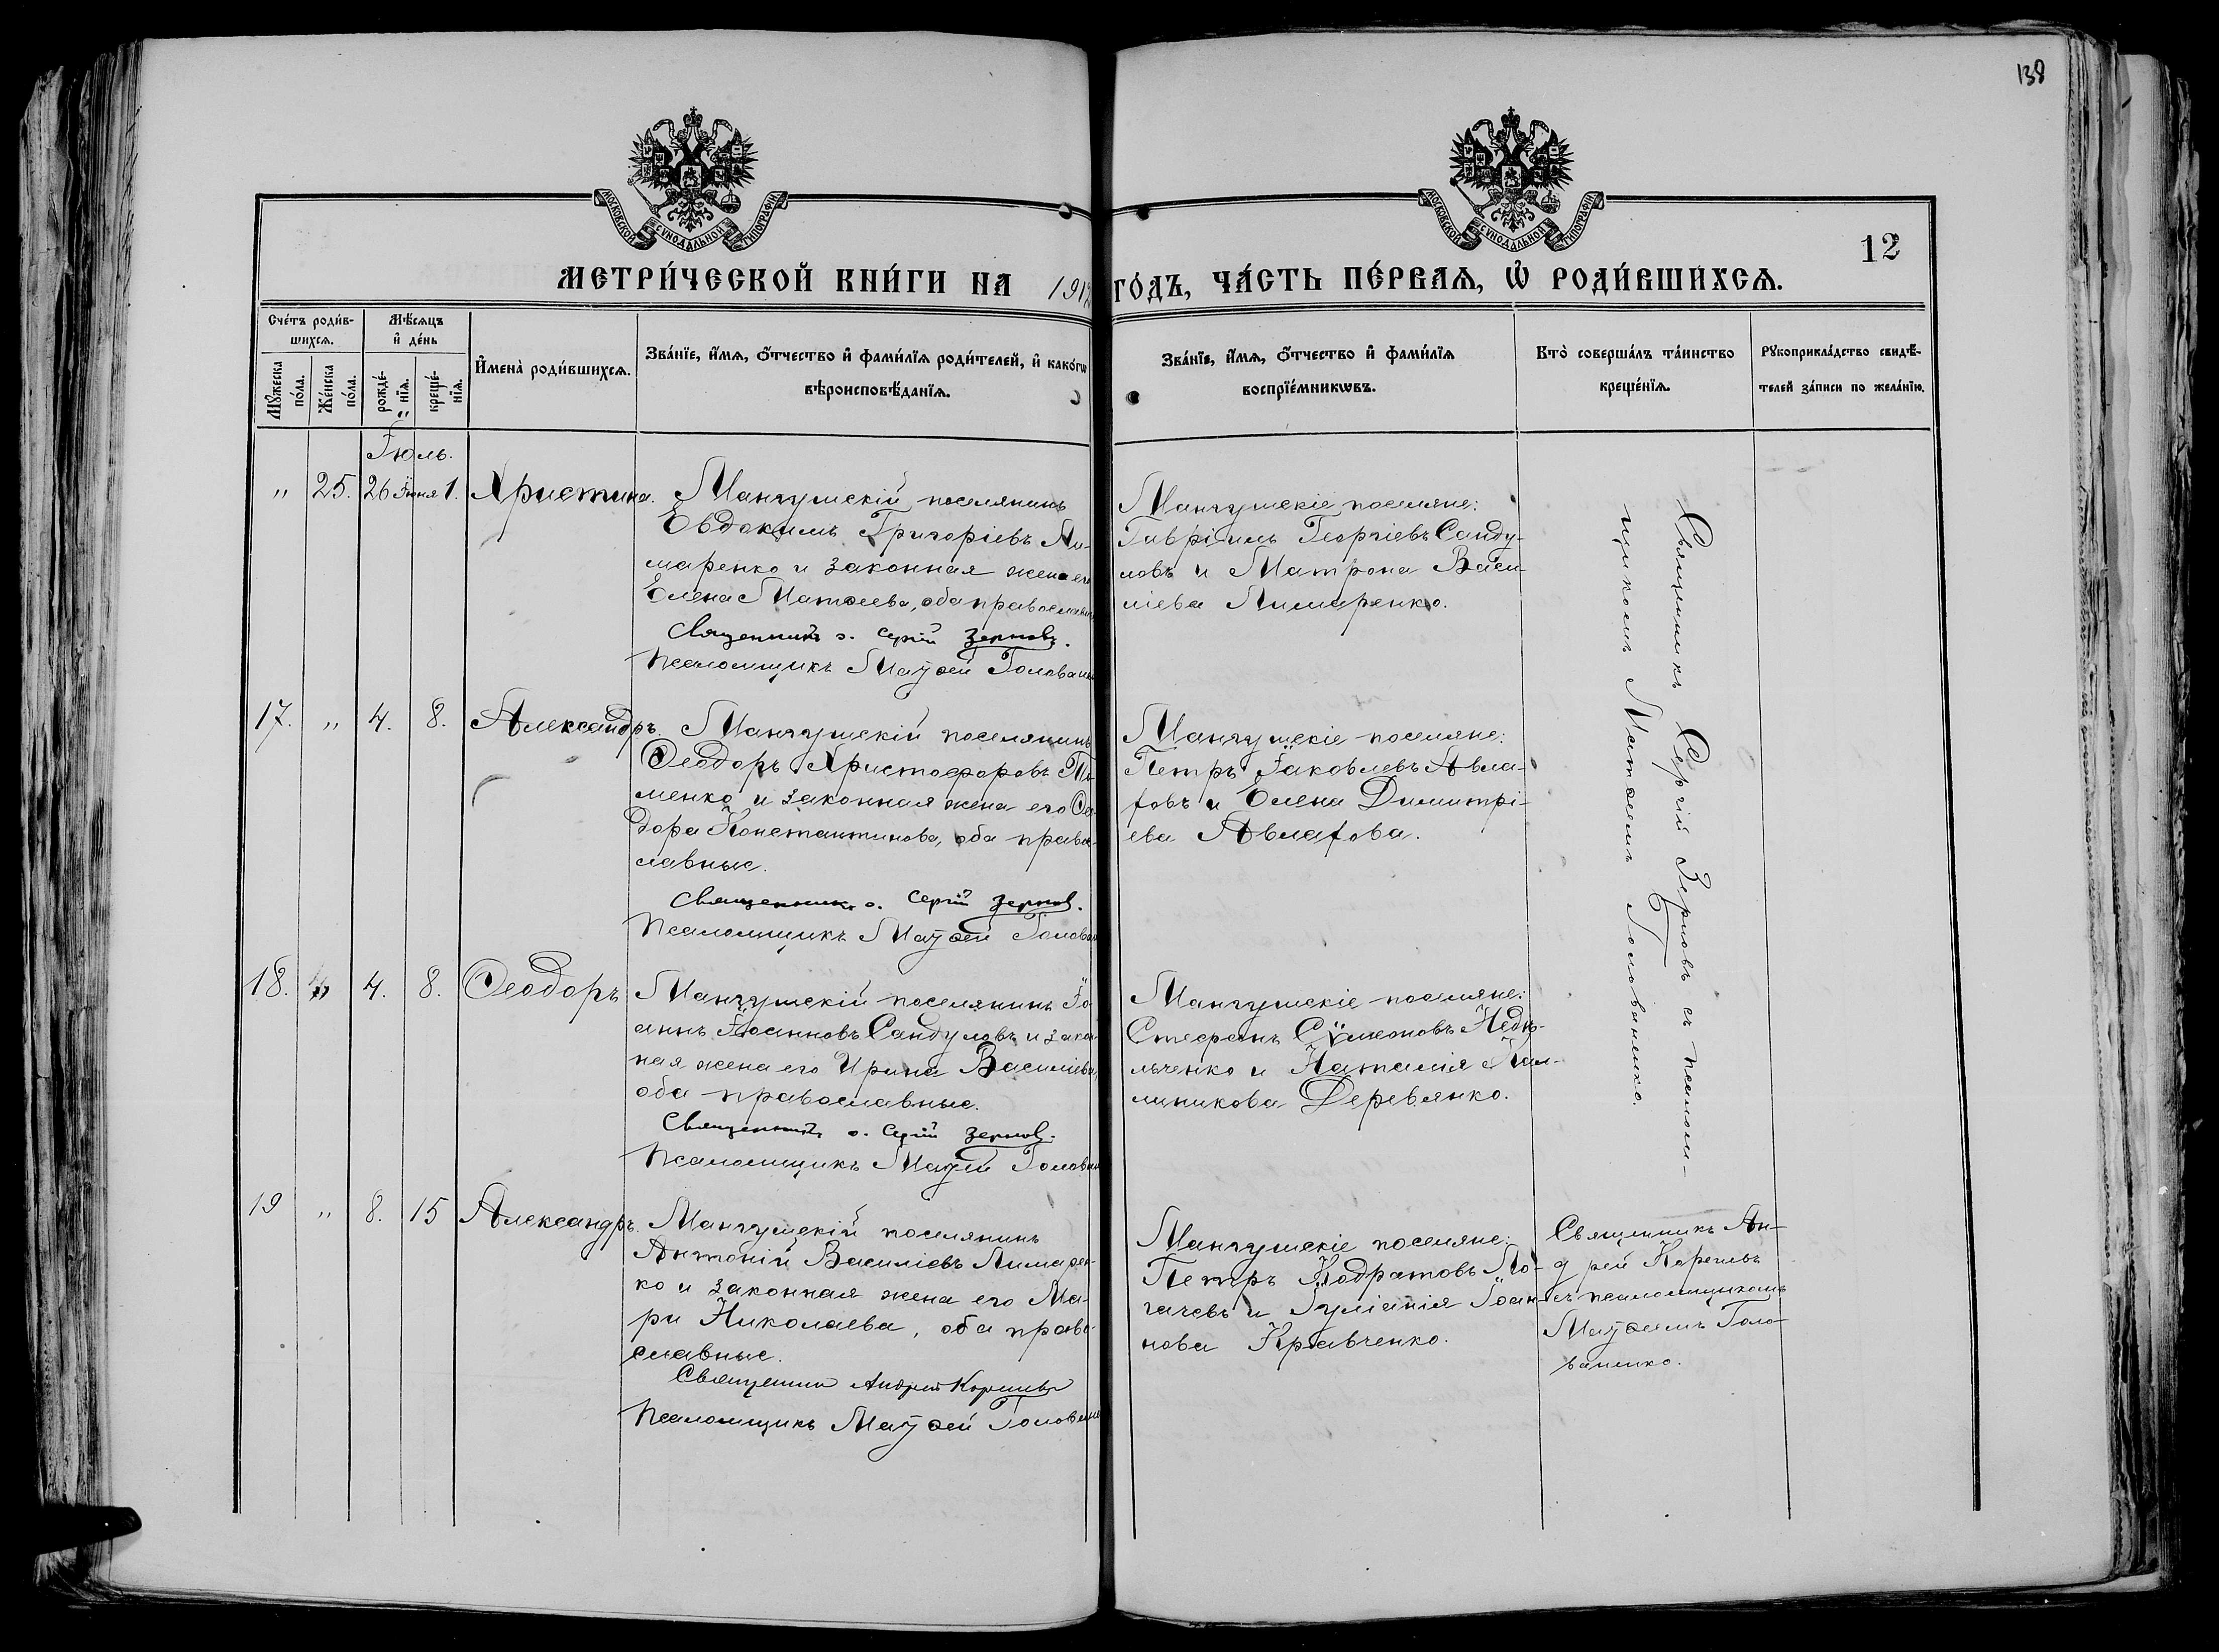 138
МОСКОВСКОЙ СУНОДАЛЬНОЙ ТИПОГРАФІИ
МОСКОВСКОЙ СУНОДАЛЬНОЙ ТИПОГРАФІИ
12
МЕТРИ́ЧЕСКОЙ КНИ́ГИ НА 1912 ГО́ДЪ, ЧА́СТЬ ПЕ́РВАЯ, Ѡ҆ РОДИ́ВШИХСЯ.
Сче́тъ роди́в-
шихсѧ.
Мѹ́жеска по́ла.
Же́нска по́ла.
Мѣ́сѧцъ
и҆ де́нь
рожде́-
нїѧ.
креще́-
нїѧ.
И҆мена̀ роди́вшихсѧ.
Зва́нїе, и҆́мѧ, ѻ҆́тчество и҆ фами́лїѧ роди́телей, и҆ како́гѡ
вѣроисповѣ́данїѧ.
Зва́нїе, и҆́мѧ, ѻ҆́тчество и҆ фами́лїѧ
воспрїе́мникѡвъ.
Кто̀ соверша́лъ та́инство
креще́нїѧ.
Рѹкоприкла́дство свидѣ́-
телей за́писи по жела́нїю.
Іюль.
" 25. 26 Іюня 1. Христина.
Мангушскій поселянинъ
Евдокимъ Григоріевъ Ли-
маренко и законная жена его
Елена Матѳеева, оба православн
Священникъ о. Сергій Зерновъ.
Псаломщикъ Матѳей Голован
Мангушскіе поселяне:
Гавріилъ Георгіевъ Санду-
ловъ и Матрона Васи-
ліева Лимаренко.
Священникъ Сергій Зерновъ съ псалом-
щикомъ Матѳеемъ Голованенко.
17. " 4. 8. Александръ.
Мангушскій поселянинъ
Ѳеодоръ Христофоровъ
менко и законная жена его Ѳео
дора Константинова, оба право
славные.
Священникъ о. Сергій Зерновъ.
Псаломщикъ Матѳей Голован
Мангушскіе поселяне:
Петръ Іаковлевъ Авла-
ховъ и Елена Димитрі-
ева Авлахова.
18. " 4. 8. Ѳеодоръ
Мангушскій поселянинъ Іо
аннъ Іоанновъ Сандуловъ и закон
ная жена его Ирина Василіева,
оба православные.
Священникъ о. Сергій Зерновъ.
Псаломщикъ Матѳей Голован
Мангушскіе поселяне:
Стефанъ Сѵмеоновъ Недѣ-
льченко и Наталія Кал-
линикова Деревянко.
19 " 8. 15 Александръ.
Мангушскій поселянинъ
Антоній Василіевъ Лимарен-
ко и законная жена его Ма-
ри Николаева, оба право-
славные.
Священник Андрей
Псаломщикъ Матѳей Голован
Мангушскіе поселяне:
Петръ Кодратовъ Ло-
гачевъ и Іуліанія Іоан-
нова Кравченко.
Священникъ Ан-
дрей
съ псаломщикомъ
Матѳеемъ Голо-
ваненко.